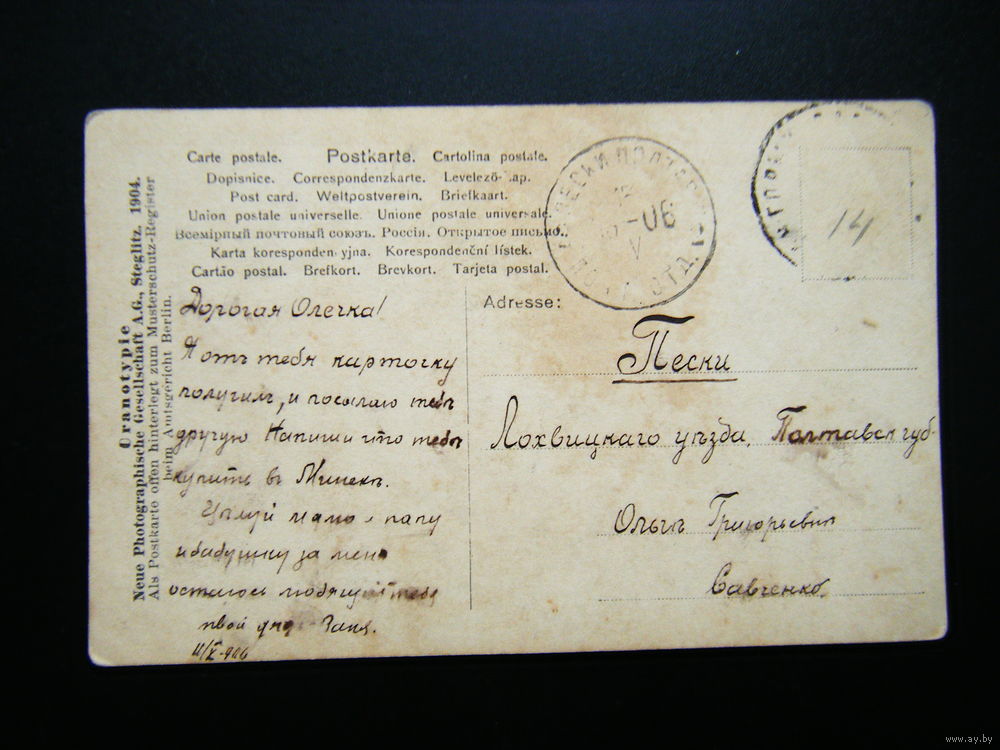 Carte postale. Postkarte. Cartolina postale.
Dopisnice. Correspondenzkarte. Levelező-lap.
Post card. Weltpostverein. Briefkaart.
Union postale universelle. Unione postale universale.
Всемірный почтовый союзъ. Россія. Открытое письмо.
Karta korespondencyjna. Korespondenční lístek.
Cartão postal. Brefkort. Brevkort. Tarjeta postal.
Uranotypie
Neue Photographische Gesellschaft A.G., Steglitz. 1904.
Als Postkarte offen hinterlegt zum Musterschutz-Register
beim Amtsgericht Berlin.
Дорогая Олечка!
Я отъ тебя карточку
получилъ, и посылаю тебѣ
другую Напиши что тебѣ
купить въ Минскѣ.
Цѣлуй маму и папу
и бабушку за меня
остаюсь любящій тебя
твой дядя
Adresse:
Пески
Лохвицкаго уѣзда, Полтавск губ.
Ольгѣ Григорьевнѣ
Савченко.
ПЕСКИ ПОЛТАВ
-06
V
14
www.ay.by